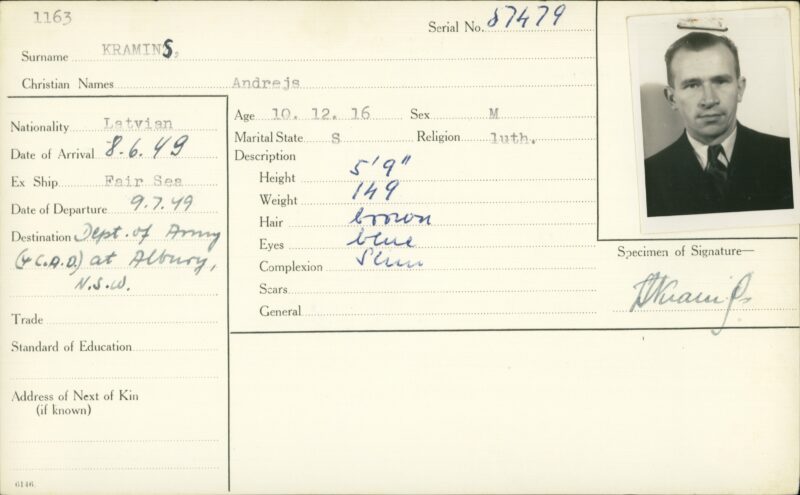 1163
Serial No. 87479
Surname KRAMINS,
Christian Names Andrejs
Nationality Latvian
Date of Arrival 8.6.49
Ex Ship Fair Sea
Date of Departure 9.7.49
Destination Dept. of Army
(4 C.A.D.) at Albury,
N.S.W.
Trade
Standard of Education
Address of Next of Kin
(if known)
6146
Age 10. 12. 16 Sex M
Marital State S Religion luth.
Description
Height 5'9"
Weight 149
Hair brown
Eyes blue
Complexion
Scars
General
Specimen of Signature—
AKramiņš